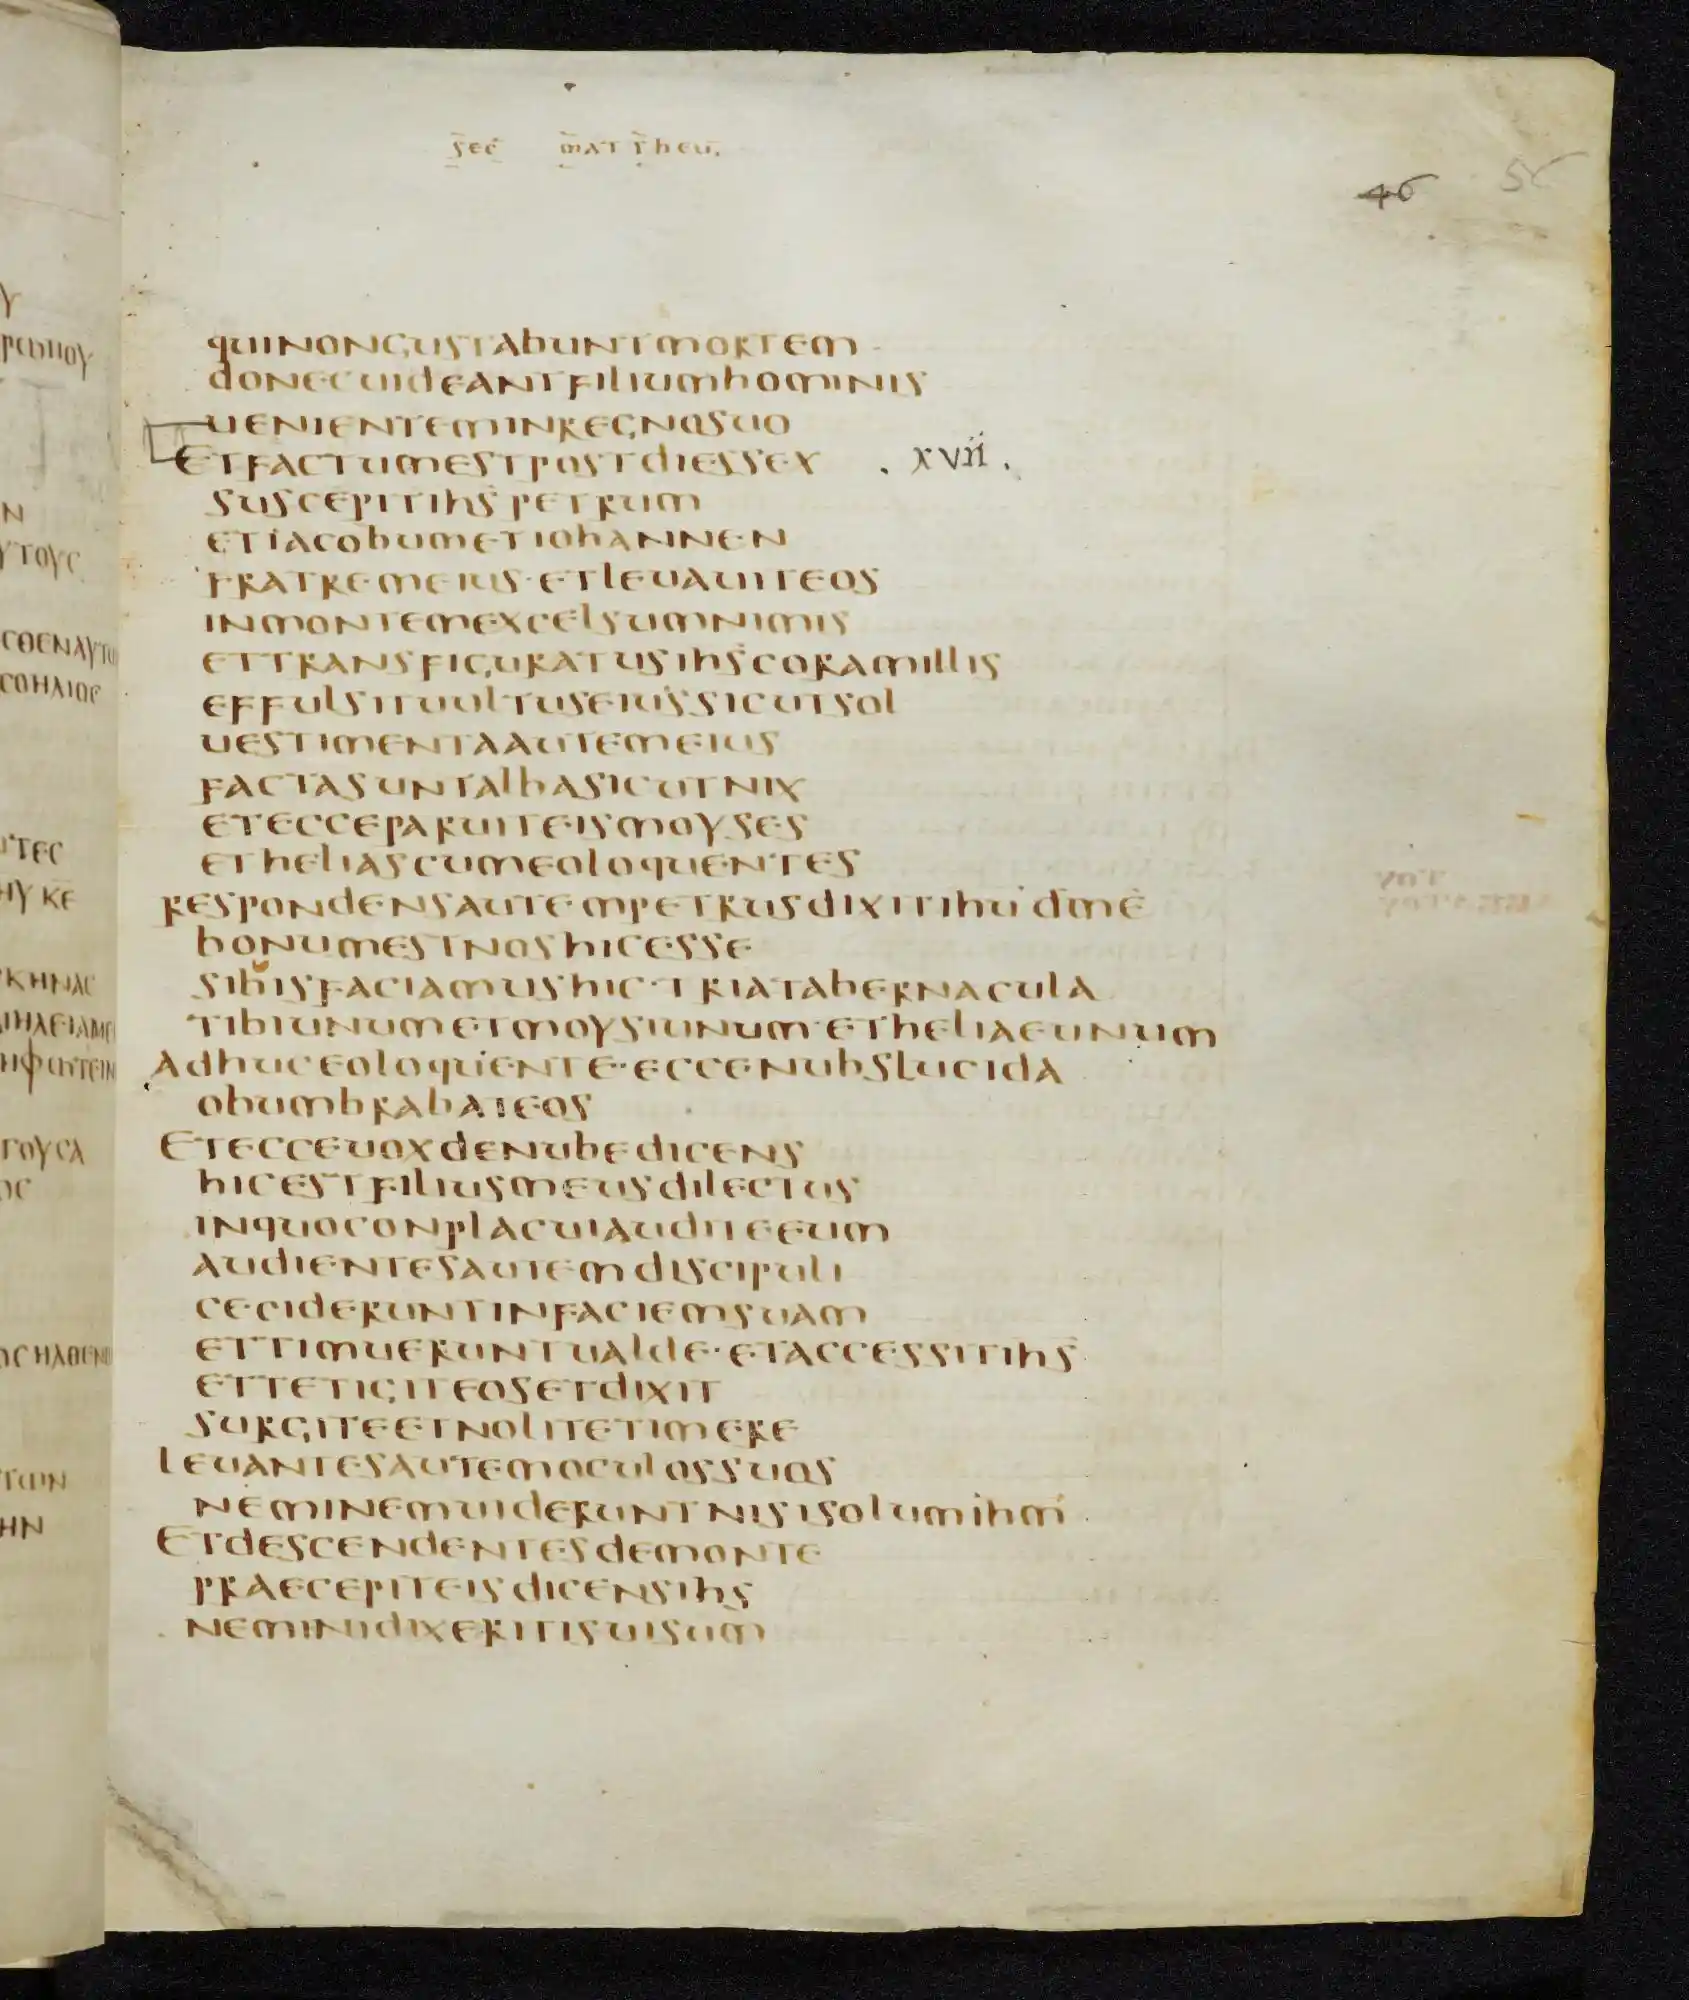 sec mattheu.
46 56
quinongustabuntmortem
donecuideantfiliumhominis
uenienteminregnosuo
Etfactumestpostdiessex . xvii .
suscepitihs petrum
etiacobumetiohannen
fratremeius·etleuauiteos
inmontemexcelsumnimis
ettransfiguratusihscoramillis
effulsituultuseiussicutsol
uestimentaautemeius
factasuntalbasicutnix
etecceparuiteismoyses
etheliascumeoloquentes
respondensautempetrusdixitihu dme
bonumestnoshicesse
sibisfaciamushic·triatabernacula
tibiunumetmoysiunum·etheliaeunum
adhuceoloquente·eccenubslucida
obumbrabateos
Etecceuoxdenubedicens
hicestfiliusmeusdilectus
inquoconplacuiauditeeum
audientesautemdiscipuli
cecideruntinfaciemsuam
ettimueruntualde·etaccessitihs
ettetigiteosetdixit
surgiteetnolitetimere
leuantesautemoculossuos
neminemuideruntnisisolumihm
Etdescendentesdemonte
praecepiteisdicensihs
neminidixeritisuisum